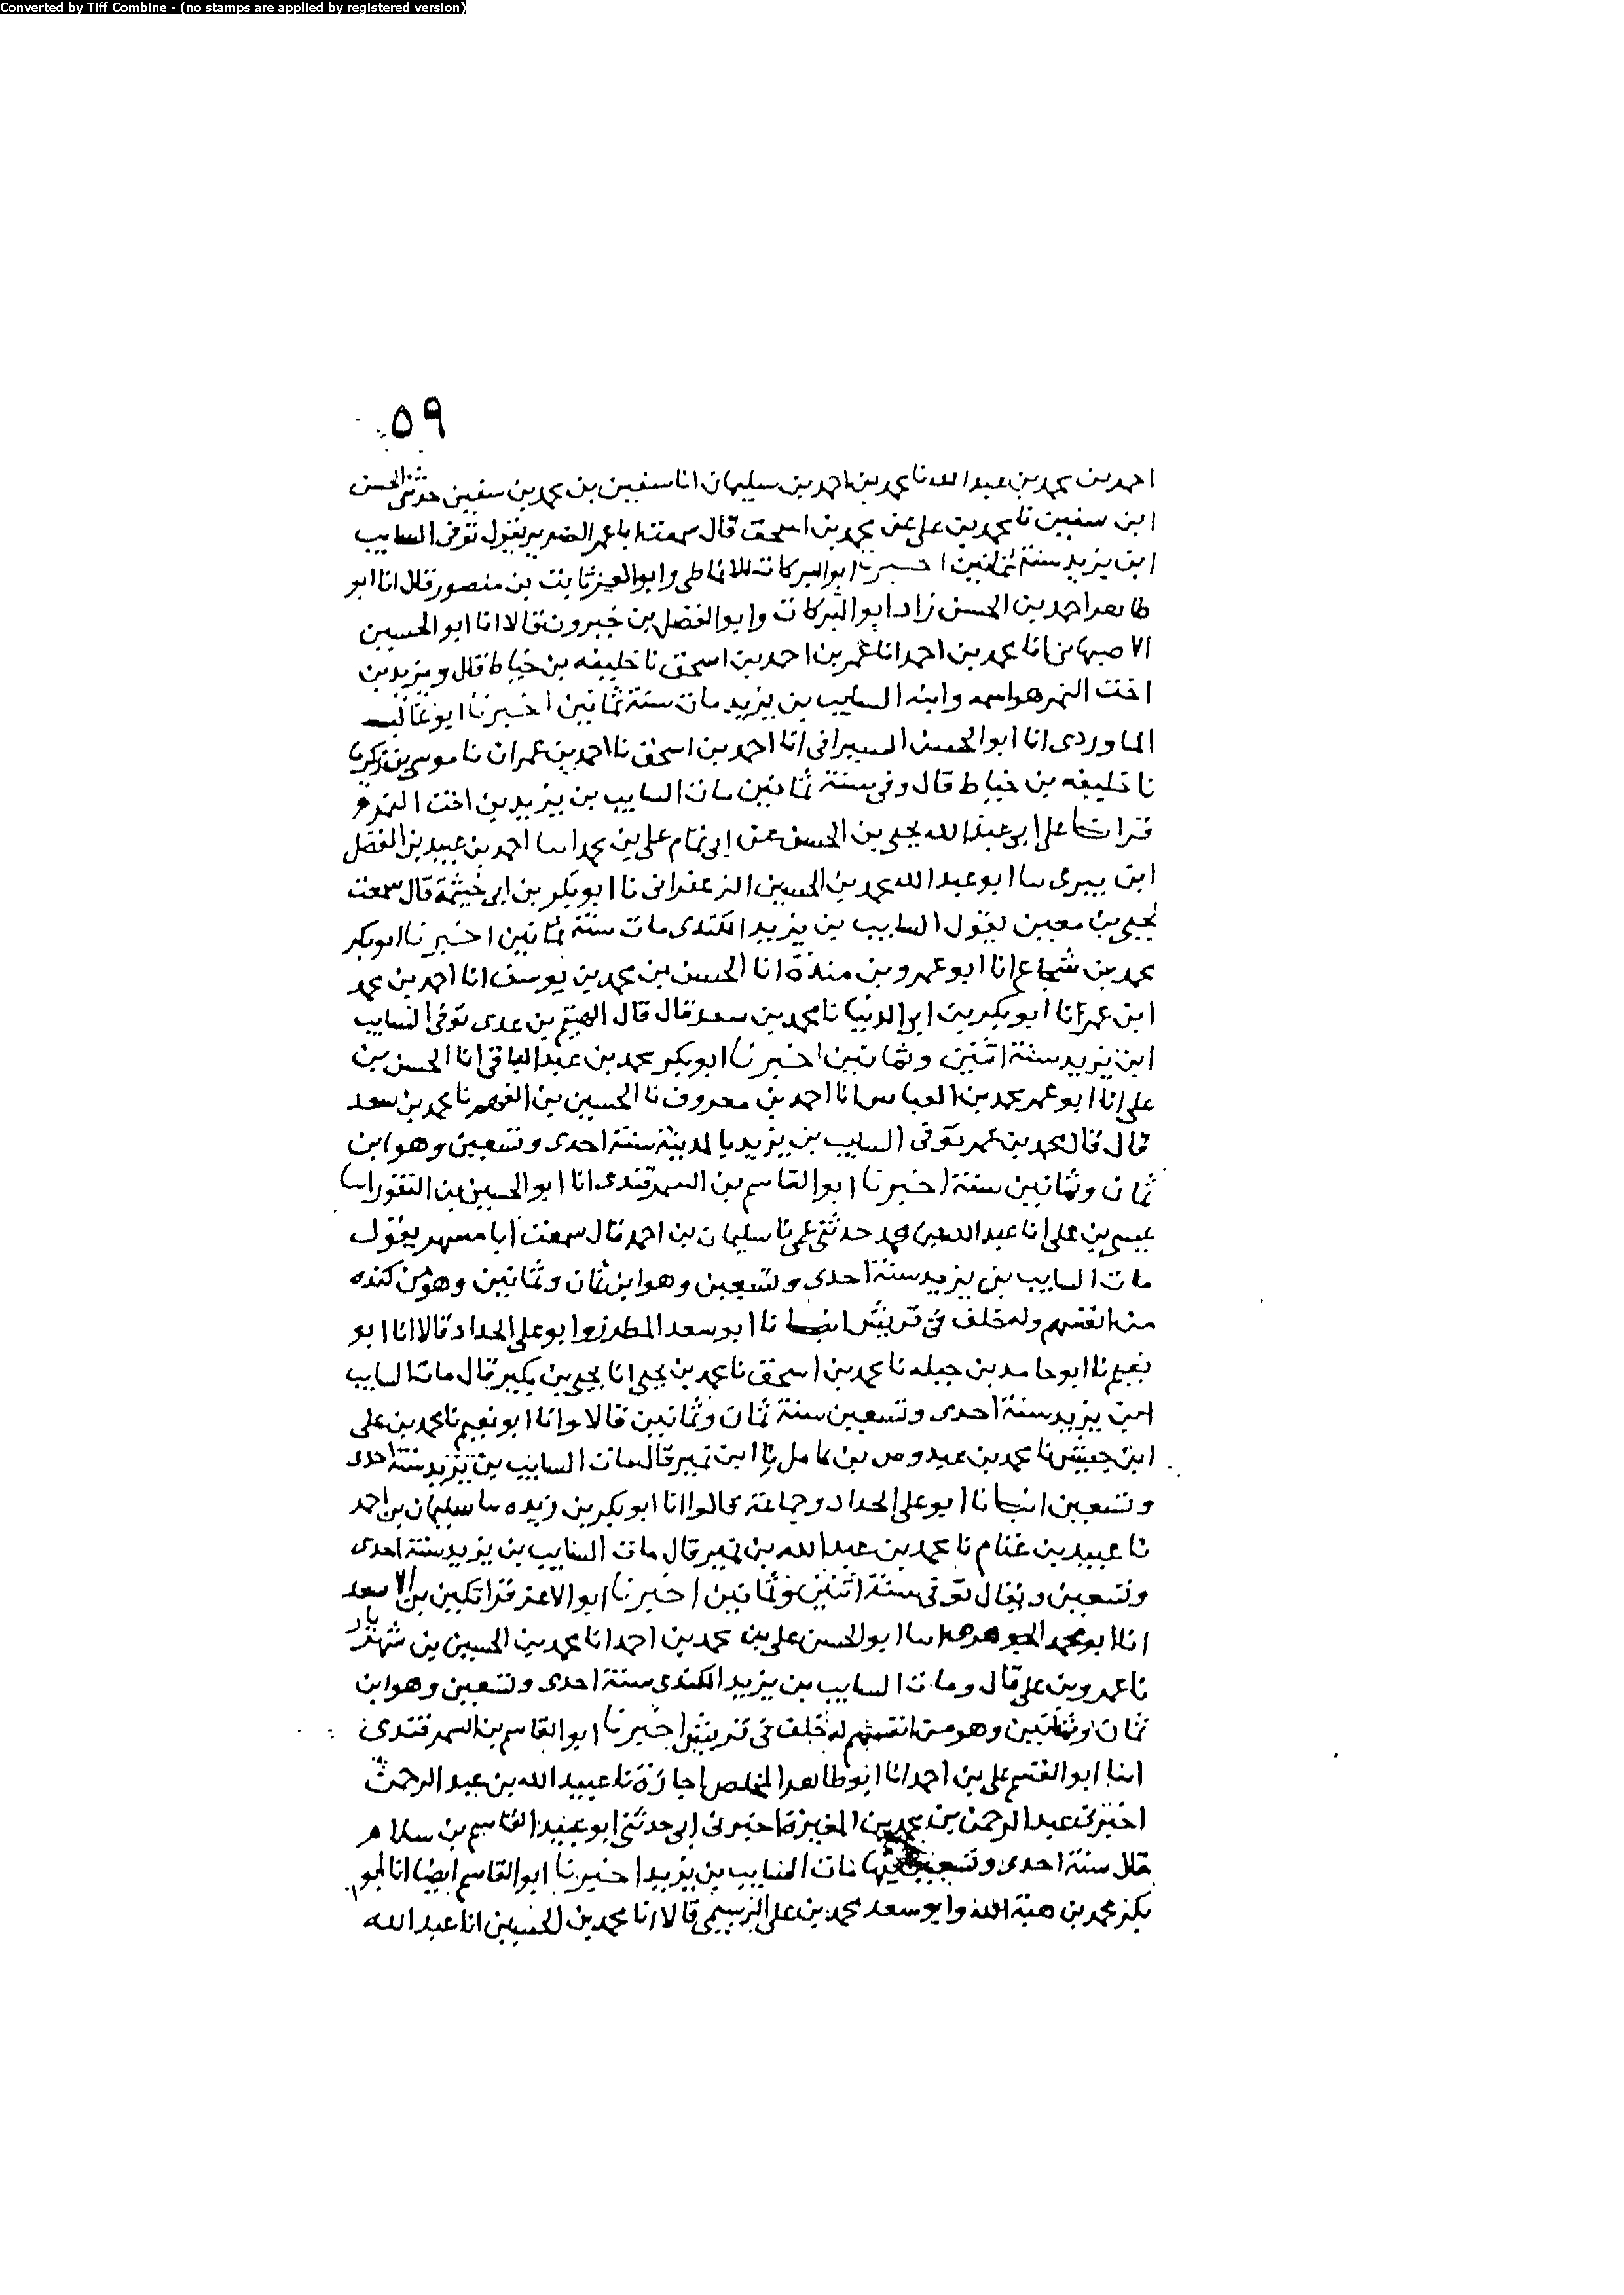 Converted by Tiff Combine - (no stamps are applied by registered version)
٥٩
احمد بن محمد بن عبد الله نا محمد بن احمد بن سليمان انا سفيين بن محمد بن سفيين حدثني الحسن
ابن سفيين نا محمد بن علي عن محمد بن اسحق قال سمعت ابا عمر الضرير يقول توفي السايب
ابن يزيد سنة ثمانين اخبرنا ابو البركات الانماطي وابو العز ثابت بن منصور قال انا ابو
طاهر احمد بن الحسن زاد ابو البركات وابو الفضل بن خيرون قالا انا ابو الحسين
الاصبهاني انا محمد بن احمد انا عمر بن احمد بن اسحق نا خليفه بن خياط قال ويزيد بن
اخت النمر هو اسمه وابنه السايب بن يزيد مات سنة ثمانين اخبرنا ابو غالب
الماوردى انا ابو الحسن السيرافى انا احمد بن اسحق نا احمد بن عمران نا موسى بن زكريا
نا خليفه بن خياط قال وفي سنة ثمانين مات السايب بن يزيد بن اخت النمر
قرات على ابى عبد الله يحيى بن الحسن عن ابى تمام على بن محمد انا احمد بن عبيد بن الفضل
ابن بيرى نا ابو عبد الله محمد بن الحسين الزعفرانى نا ابو بكر بن ابى خيثمة قال سمعت
يحيى بن معين يقول السايب بن يزيد الكندى مات سنة ثمانين اخبرنا ابو بكر
محمد بن شجاع انا ابو عمرو بن مندة انا الحسن بن محمد بن يوسف انا احمد بن محمد
ابن عمر انا ابو بكر بن ابى الدنيا نا محمد بن سعد قال قال الهيثم بن عدى توفى السايب
ابن يزيد سنة اثنين وثمانين اخبرنا ابو بكر محمد بن عبد الباقى انا الحسن بن
على انا ابو عمر محمد بن العباس انا احمد بن معروف نا الحسين بن الفهم نا محمد بن سعد
قال قال محمد بن عمر توفى السايب بن يزيد بالمدينة سنة احدى وتسعين وهو ابن
ثمان وثمانين سنة اخبرنا ابو القاسم بن السمرقندى انا ابو الحسين بن النقور انا
عيسى بن على انا عبد الله بن محمد حدثنى عمى نا سليمان بن احمد قال سمعت ابا مسهر يقول
مات السايب بن يزيد سنة احدى وتسعين وهو ابن ثمان وثمانين وهو من كنده
من انفسهم وله حلف فى قريش انبانا ابو سعد المطرز وابو على الحداد قالا انا ابو
نعيم نا ابو حامد بن جبله نا محمد بن اسحق نا محمد بن يحيى انا يحيى بن بكير قال مات السايب
ابن يزيد سنة احدى وتسعين سنة ثمان وثمانين قالا وانا ابو نعيم نا محمد بن على
ابن حبيش نا محمد بن عبدوس بن كامل نا ابن نمير قال مات السايب بن يزيد سنة احدى
وتسعين انبانا ابو على الحداد وجماعة قالوا انا ابو بكر بن ريذه نا سليمان بن احمد
نا عبيد بن غنام نا محمد بن عبد الله بن نمير قال مات السايب بن يزيد سنة احدى
وتسعين ويقال توفى سنة اثنين وثمانين اخبرنا ابو الاعز قراتكين بن الاسعد
انا ابو محمد الجوهرى انا ابو الحسن على بن محمد بن احمد انا محمد بن الحسين بن شهريار
نا عمرو بن على قال ومات السايب بن يزيد الكندى سنة احدى وتسعين وهو ابن
ثمان وثمانين وهو من انفسهم له حلف فى قريش اخبرنا ابو القاسم بن السمرقندى
انبا ابو القسم على بن احمد انا ابو طاهر المخلص اجازة نا عبيد الله بن عبد الرحمن
اخبرنى عبد الرحمن بن محمد بن المغيرة اخبرنى ابى حدثنى ابو عبيد القاسم بن سلام
قال سنة احدى وتسعين فيها مات السايب بن يزيد اخبرنا ابو القاسم ايضا انا ابو
بكر محمد بن هبة الله وابو سعد محمد بن على الرستمى قالا انا محمد بن الحسين انا عبد الله